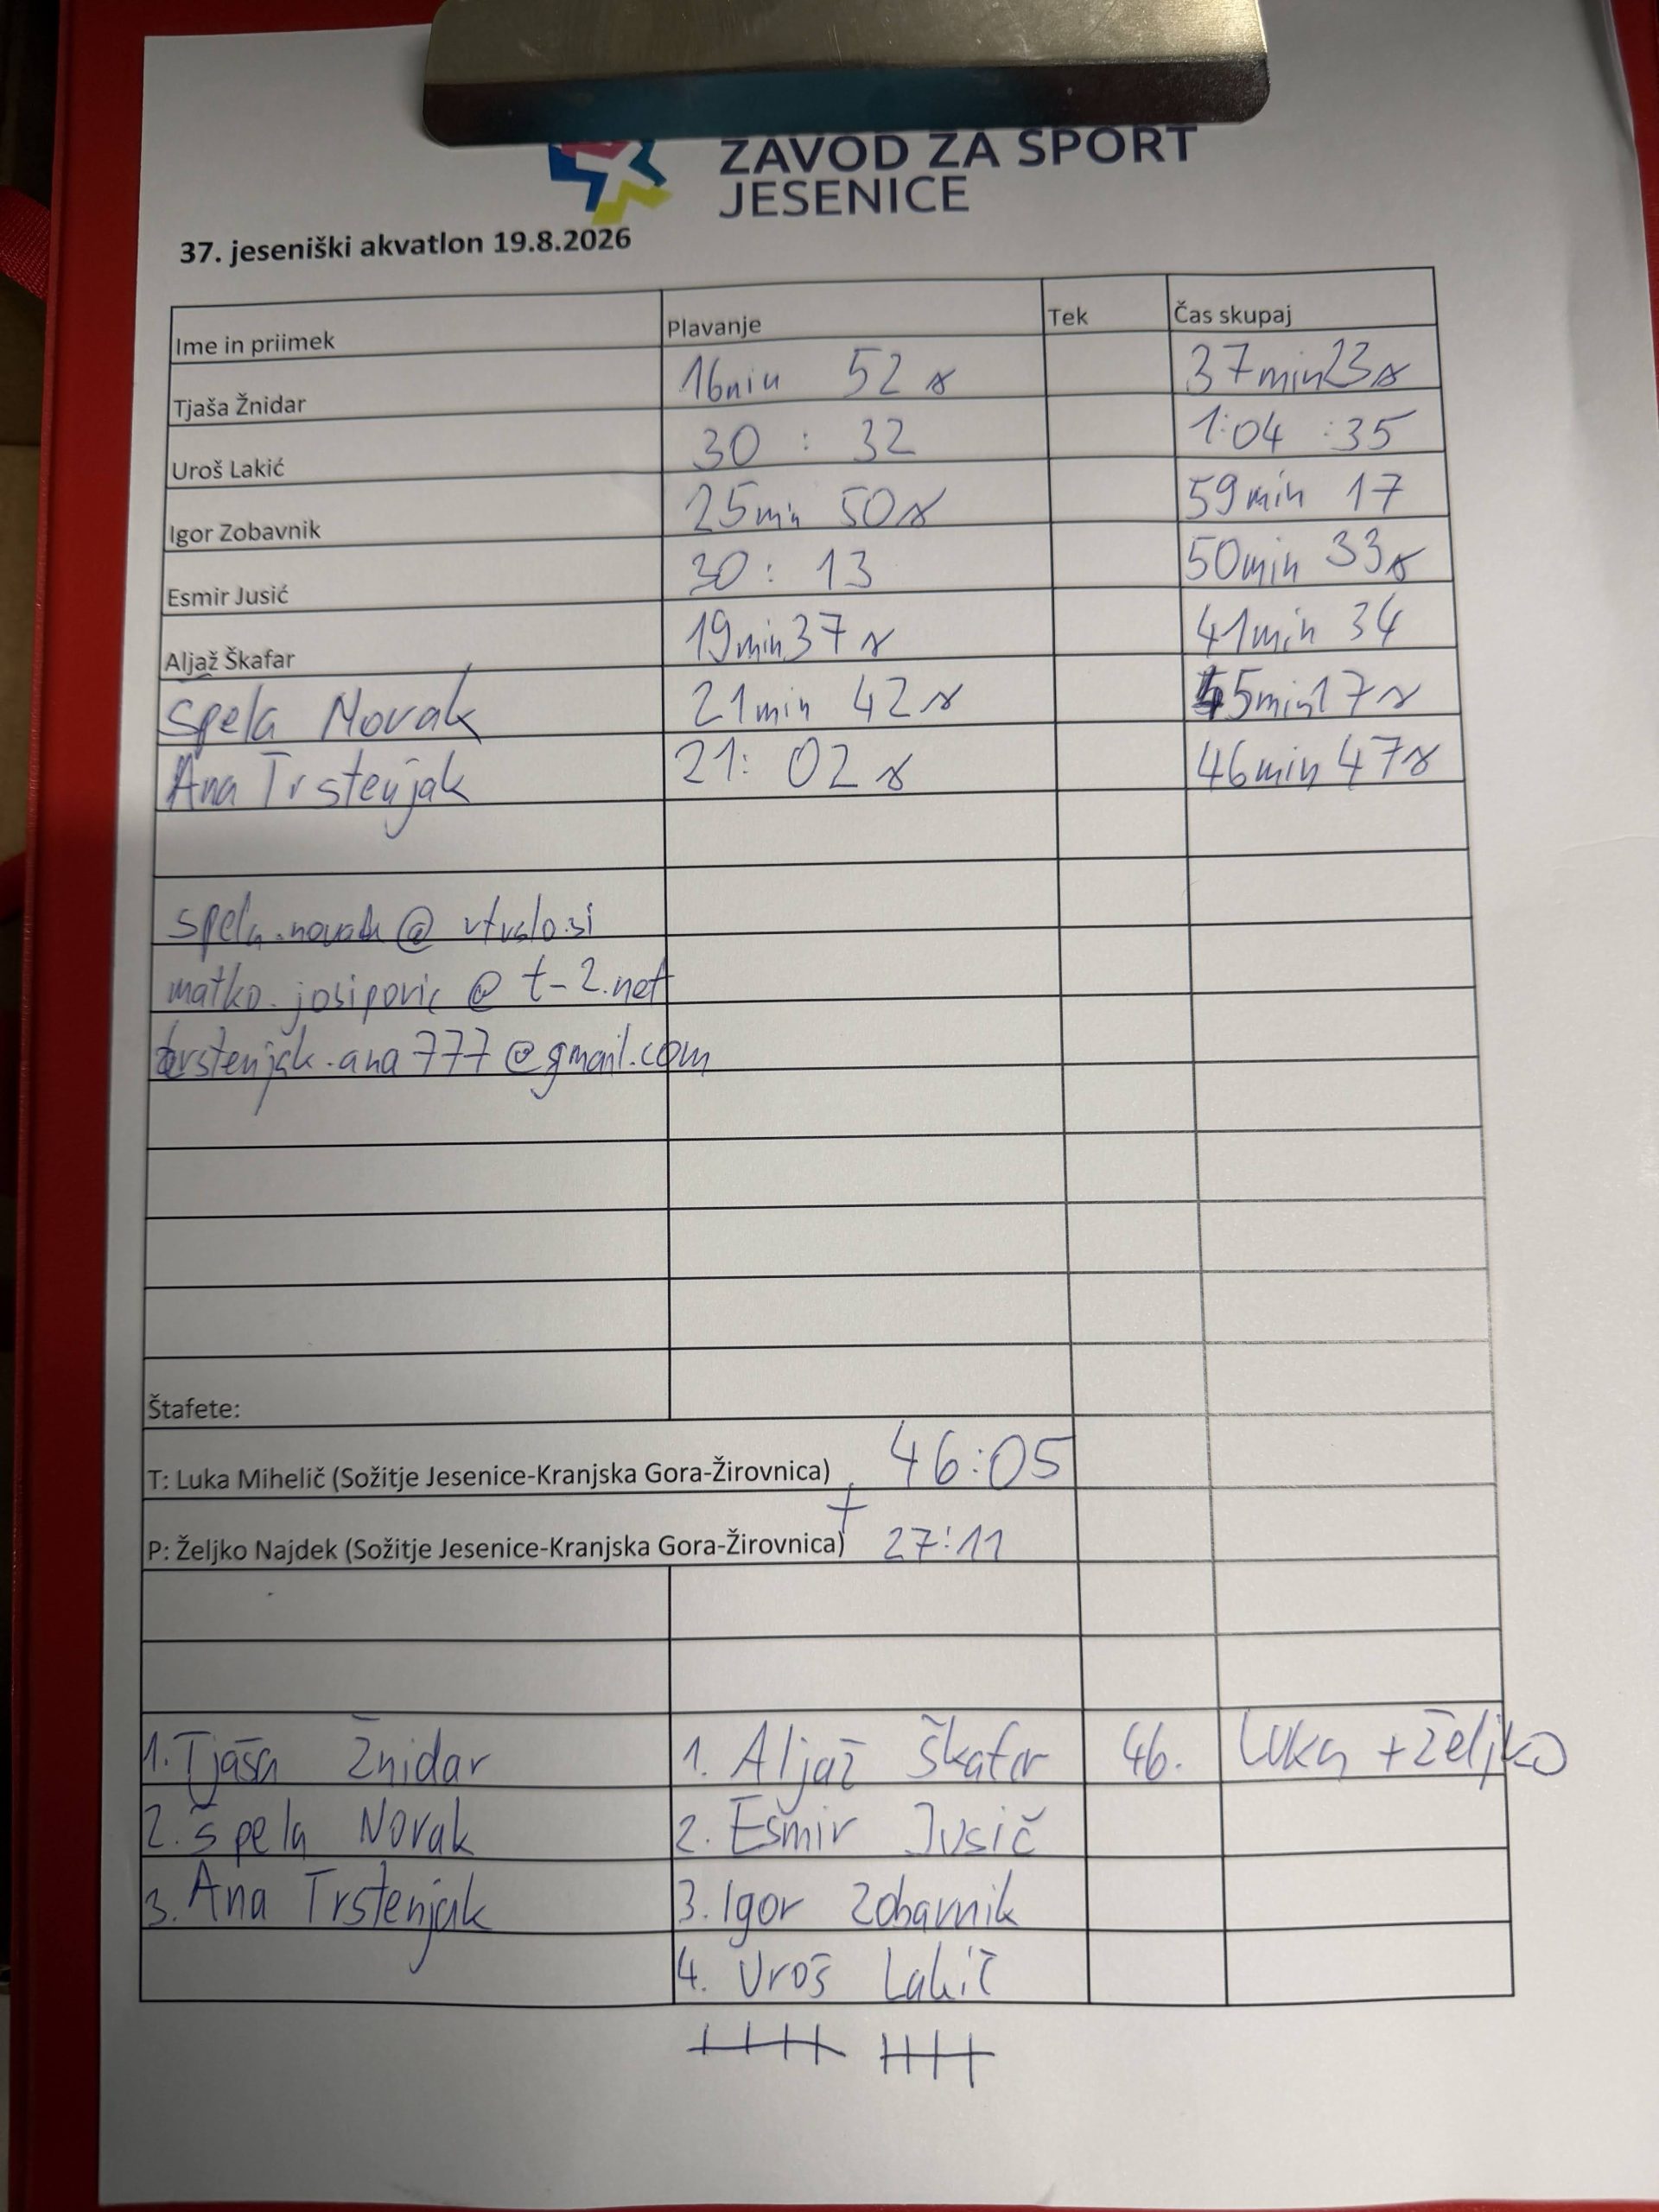 ZAVOD ZA ŠPORT
JESENICE
37. jeseniški akvatlon 19.8.2026
Ime in priimek Plavanje Tek Čas skupaj
Tjaša Žnidar 16min 52s 37min23s
Uroš Lakić 30 : 32 1:04 :35
Igor Zobavnik 25min 50s 59min 17
Esmir Jusić 30: 13 50min 33s
Aljaž Škafar 19min37s 41min 34
Spela Novak 21min 42s 45min17s
Ana Trstenjak 21: 02s 46min 47s
spela.novak@rtvslo.si
matko.josipovic@t-2.net
trstenjak.ana777@gmail.com
Štafete:
T: Luka Mihelič (Sožitje Jesenice-Kranjska Gora-Žirovnica) 46:05
+
P: Željko Najdek (Sožitje Jesenice-Kranjska Gora-Žirovnica) 27:11
1. Tjaša Žnidar 1. Aljaž Škafar 46. Luka + Željko
2. Špela Novak 2. Esmir Jusič
3. Ana Trstenjak 3. Igor Zobavnik
4. Uroš Lakič